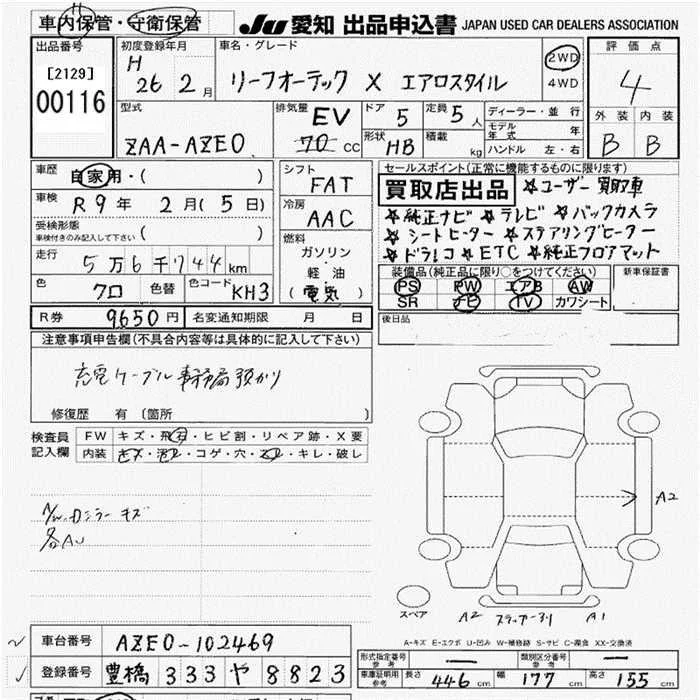 車内保管・守衛保管 JU 愛知 出品申込書 JAPAN USED CAR DEALERS ASSOCIATION
出品番号 初度登録年月 車名・グレード 評価点
[2129] H 26 2月 リーフオーテック X エアロスタイル 2WD 4WD 4
00116
型式 排気量 ドア 定員 ディーラー・並行 外装 内装
ZAA-AZE0 EV 70 CC 5 5人 モデル年式 年 B B
形状 HB 積載 kg ハンドル 左・右
車歴 自家用・( ) シフト FAT セールスポイント(正常に機能するものに限ります)
車検 R9年 2月(5日) 冷房 AAC 買取店出品 ☆ユーザー買取車
受検形態 車検付きのみ記入して下さい ( ) ☆純正ナビ ☆テレビ ☆バックカメラ
走行 5万6千744km 燃料 ガソリン 軽油 (電気) ☆シートヒーター ☆ステアリングヒーター
☆ドラレコ ☆ETC ☆純正フロアマット
色 クロ 色替 色コード KH3 装備品(純正品に限り○をつけてください) 新車保証書
PS PW エアB AW
SR ナビ TV カワシート
R券 9650円 名変通知期限 月 日 後日品
注意事項申告欄(不具合内容等は具体的に記入して下さい)
充電ケーブル事務局預かり
修復歴 有 〔箇所 〕
検査員記入欄 FW キズ・飛石・ヒビ割・リペア跡・X要
内装 キズ・汚レ・コゲ・穴・スレ・キレ・破レ
キズ
各AU
A2
スペア A2 A1
A-キズ E-エクボ U-凹み W-補修跡 S-サビ C-腐食 XX-交換済
車台番号 AZE0-102469 形式指定番号 参考 ー 類別区分番号 参考 ー
登録番号 豊橋 333 や 8823 車庫証明用参考 長さ 446cm 幅 177cm 高さ 155cm